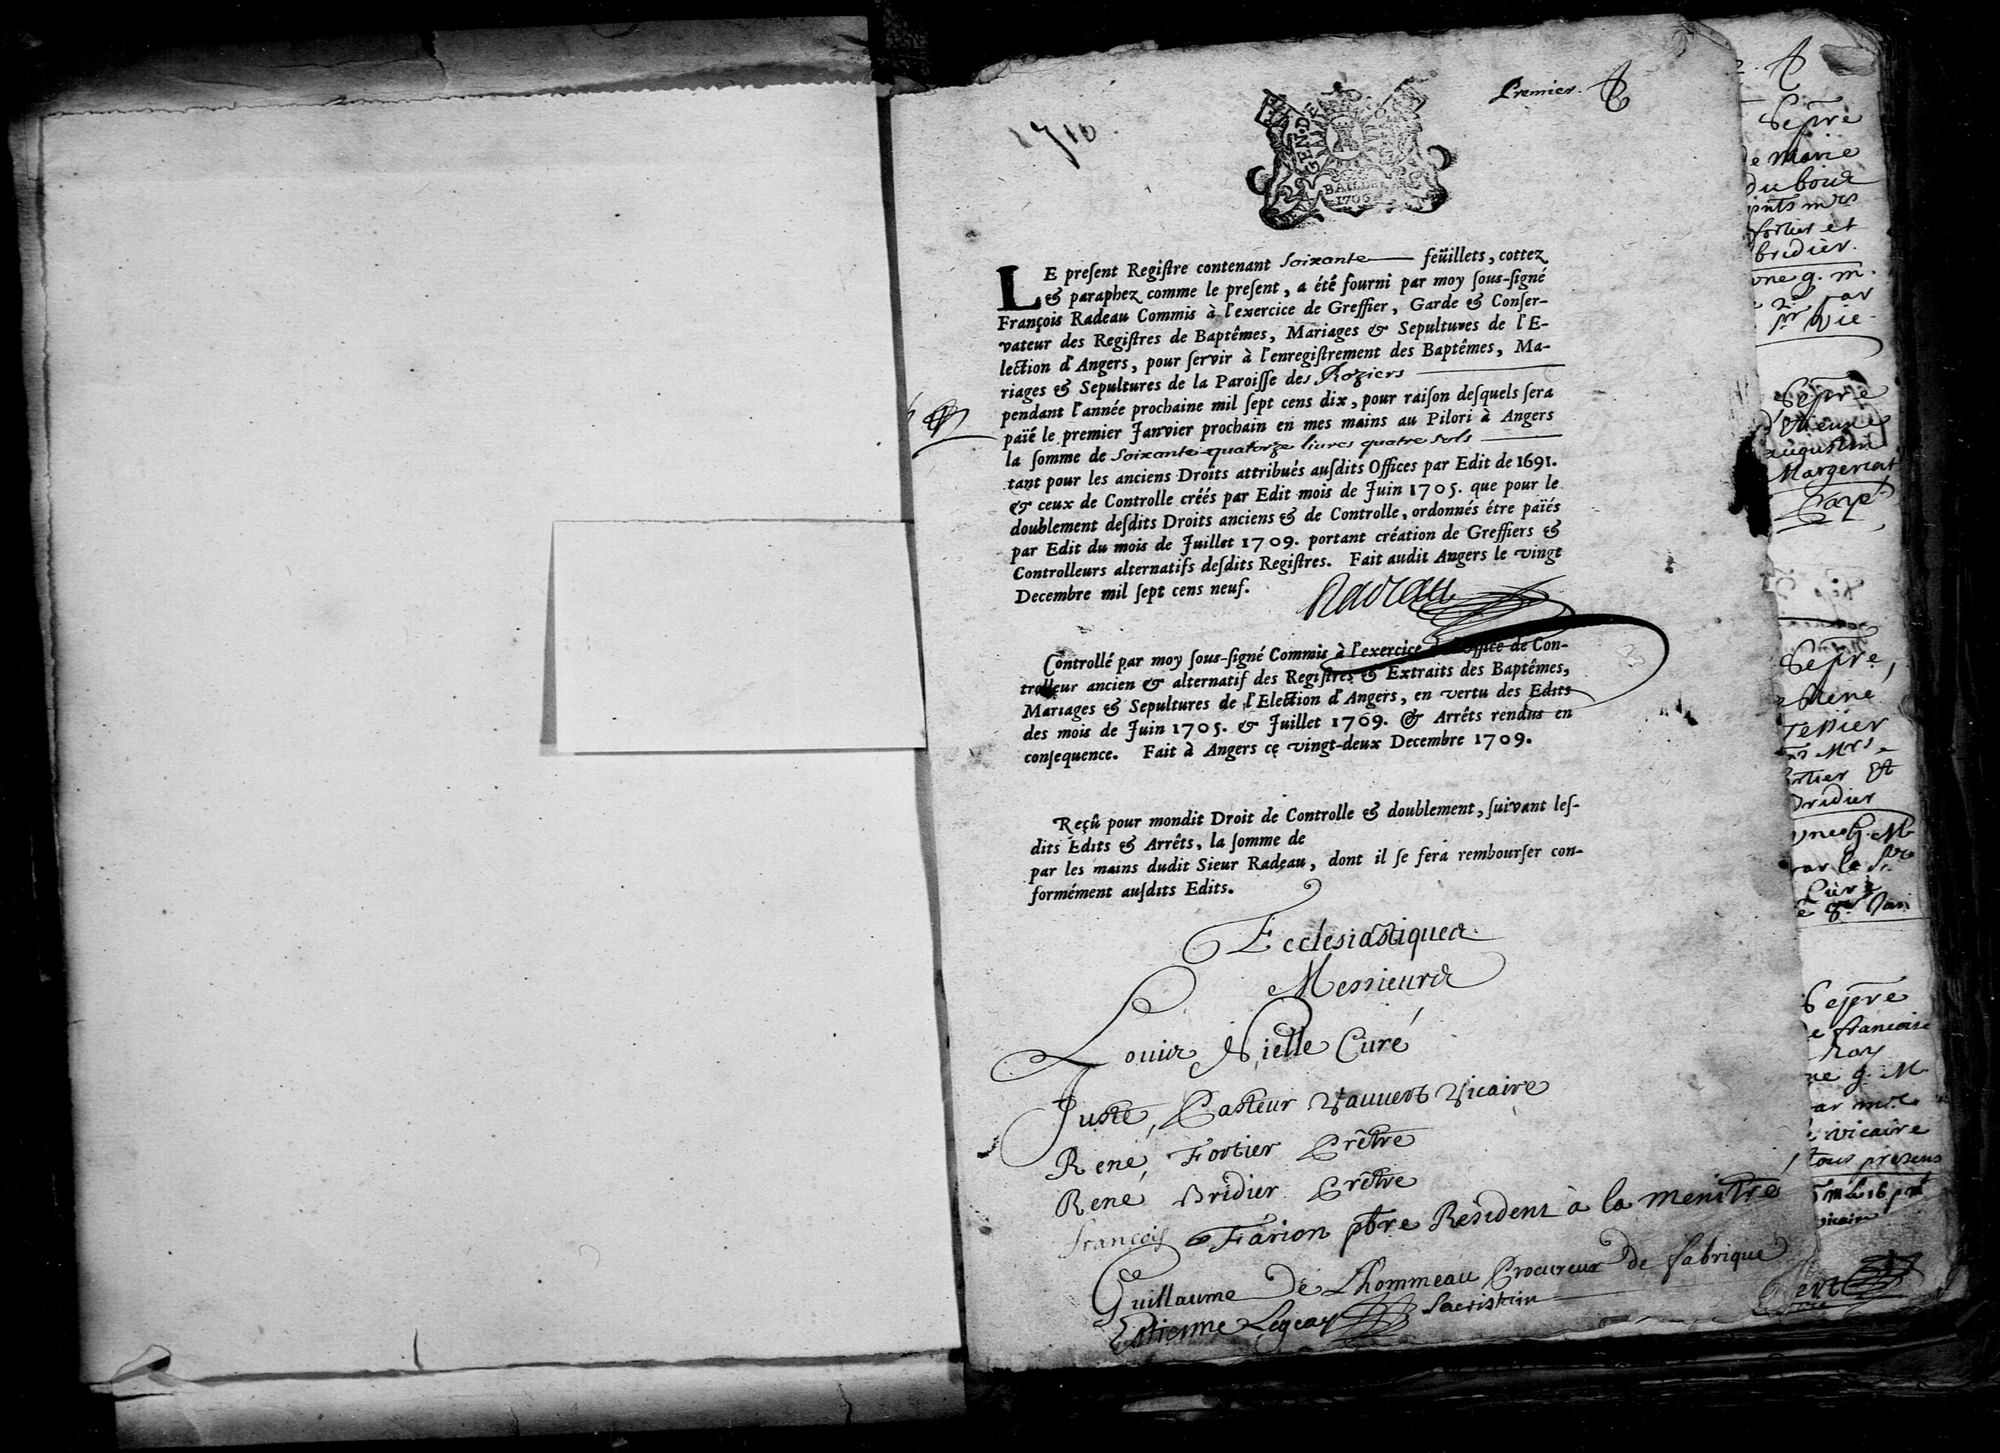 Premier.
1710.
GEN. DE
BAIL DE
1706
LE preſent Regiſtre contenant Soixante feüillets, cottez
& paraphez comme le preſent, a été fourni par moy ſous-ſigné
François Radeau Commis à l'exercice de Greffier, Garde & Conſer-
vateur des Regiſtres de Baptêmes, Mariages & Sepultures de l'E-
lection d'Angers, pour ſervir à l'enregiſtrement des Baptêmes, Ma-
riages & Sepultures de la Paroiſſe des Roziers
pendant l'année prochaine mil ſept cens dix, pour raiſon deſquels ſera
païé le premier Janvier prochain en mes mains au Pilori à Angers
la ſomme de Soixante quatorze livres quatre sols
tant pour les anciens Droits attribués auſdits Offices par Edit de 1691.
& ceux de Controlle créés par Edit mois de Juin 1705. que pour le
doublement deſdits Droits anciens & de Controlle, ordonnés étre païés
par Edit du mois de Juillet 1709. portant création de Greffiers &
Controlleurs alternatifs deſdits Regiſtres. Fait audit Angers le vingt
Decembre mil ſept cens neuf.
Radeau
Controllé par moy ſous-ſigné Commis à l'exercice de l'Office de Con-
trolleur ancien & alternatif des Regiſtres & Extraits des Baptêmes,
Mariages & Sepultures de l'Election d'Angers, en vertu des Edits
des mois de Juin 1705. & Juillet 1709. & Arrêts rendus en
conſequence. Fait à Angers ce vingt-deux Decembre 1709.
Reçû pour mondit Droit de Controlle & doublement, ſuivant leſ-
dits Edits & Arrêts, la ſomme de
par les mains dudit Sieur Radeau, dont il ſe fera rembourſer con-
formément auſdits Edits.
Ecclesiastiques
Messieurs
Louis Nielle Curé
Juste, Pasteur Vauvert Vicaire
René, Fortier Prêtre
René Bridier Prêtre
françois Farion pbre Resident à la menitré
Guillaume De Lhommeau Procureur de fabrique
Estienne Legeay Sacristain
Sepre
de Marie
du bour
fortier et
bridier.
vne g. m.
par
Vic
Sepre
d'Etienne
augustin
Margeriat
Payé
Sepre,
Rene
Tessier
Mrs
fortier &
Bridier
vne g. M
par le Sr
Curé
Jan
Sepre
de francoise
Roy
vne g. M.
par mr
vicaire
tous presens
vicaire